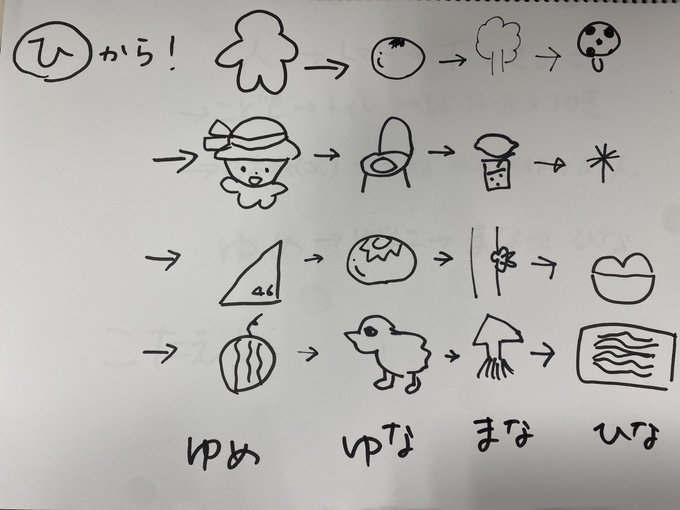 ひ から!
46
ゆめ ゆな まな ひな